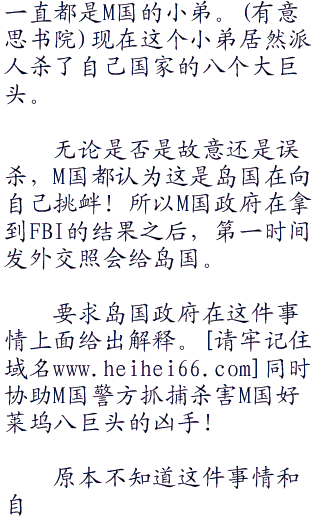 一直都是M国的小弟。(有意
思书院)现在这个小弟居然派
人杀了自己国家的八个大巨
头。
无论是否是故意还是误
杀，M国都认为这是岛国在向
自己挑衅！所以M国政府在拿
到FBI的结果之后，第一时间
发外交照会给岛国。
要求岛国政府在这件事
情上面给出解释。[请牢记住
域名www.heihei66.com]同时
协助M国警方抓捕杀害M国好
莱坞八巨头的凶手！
原本不知道这件事情和
自